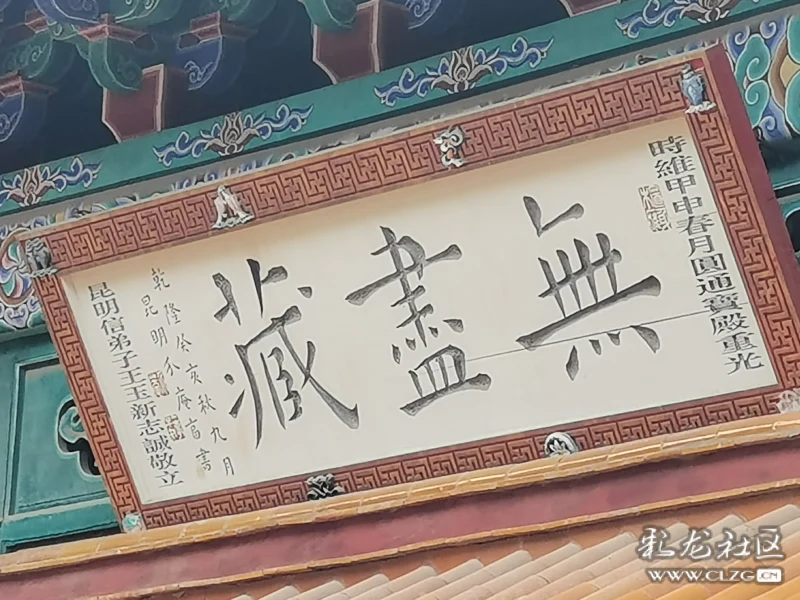 時維甲申春月圓通寶殿重光
無盡藏
乾隆癸亥秋九月
昆明
書
昆明信弟子王玉新志誠敬立
彩龙社区
WWW.CLZG.CN